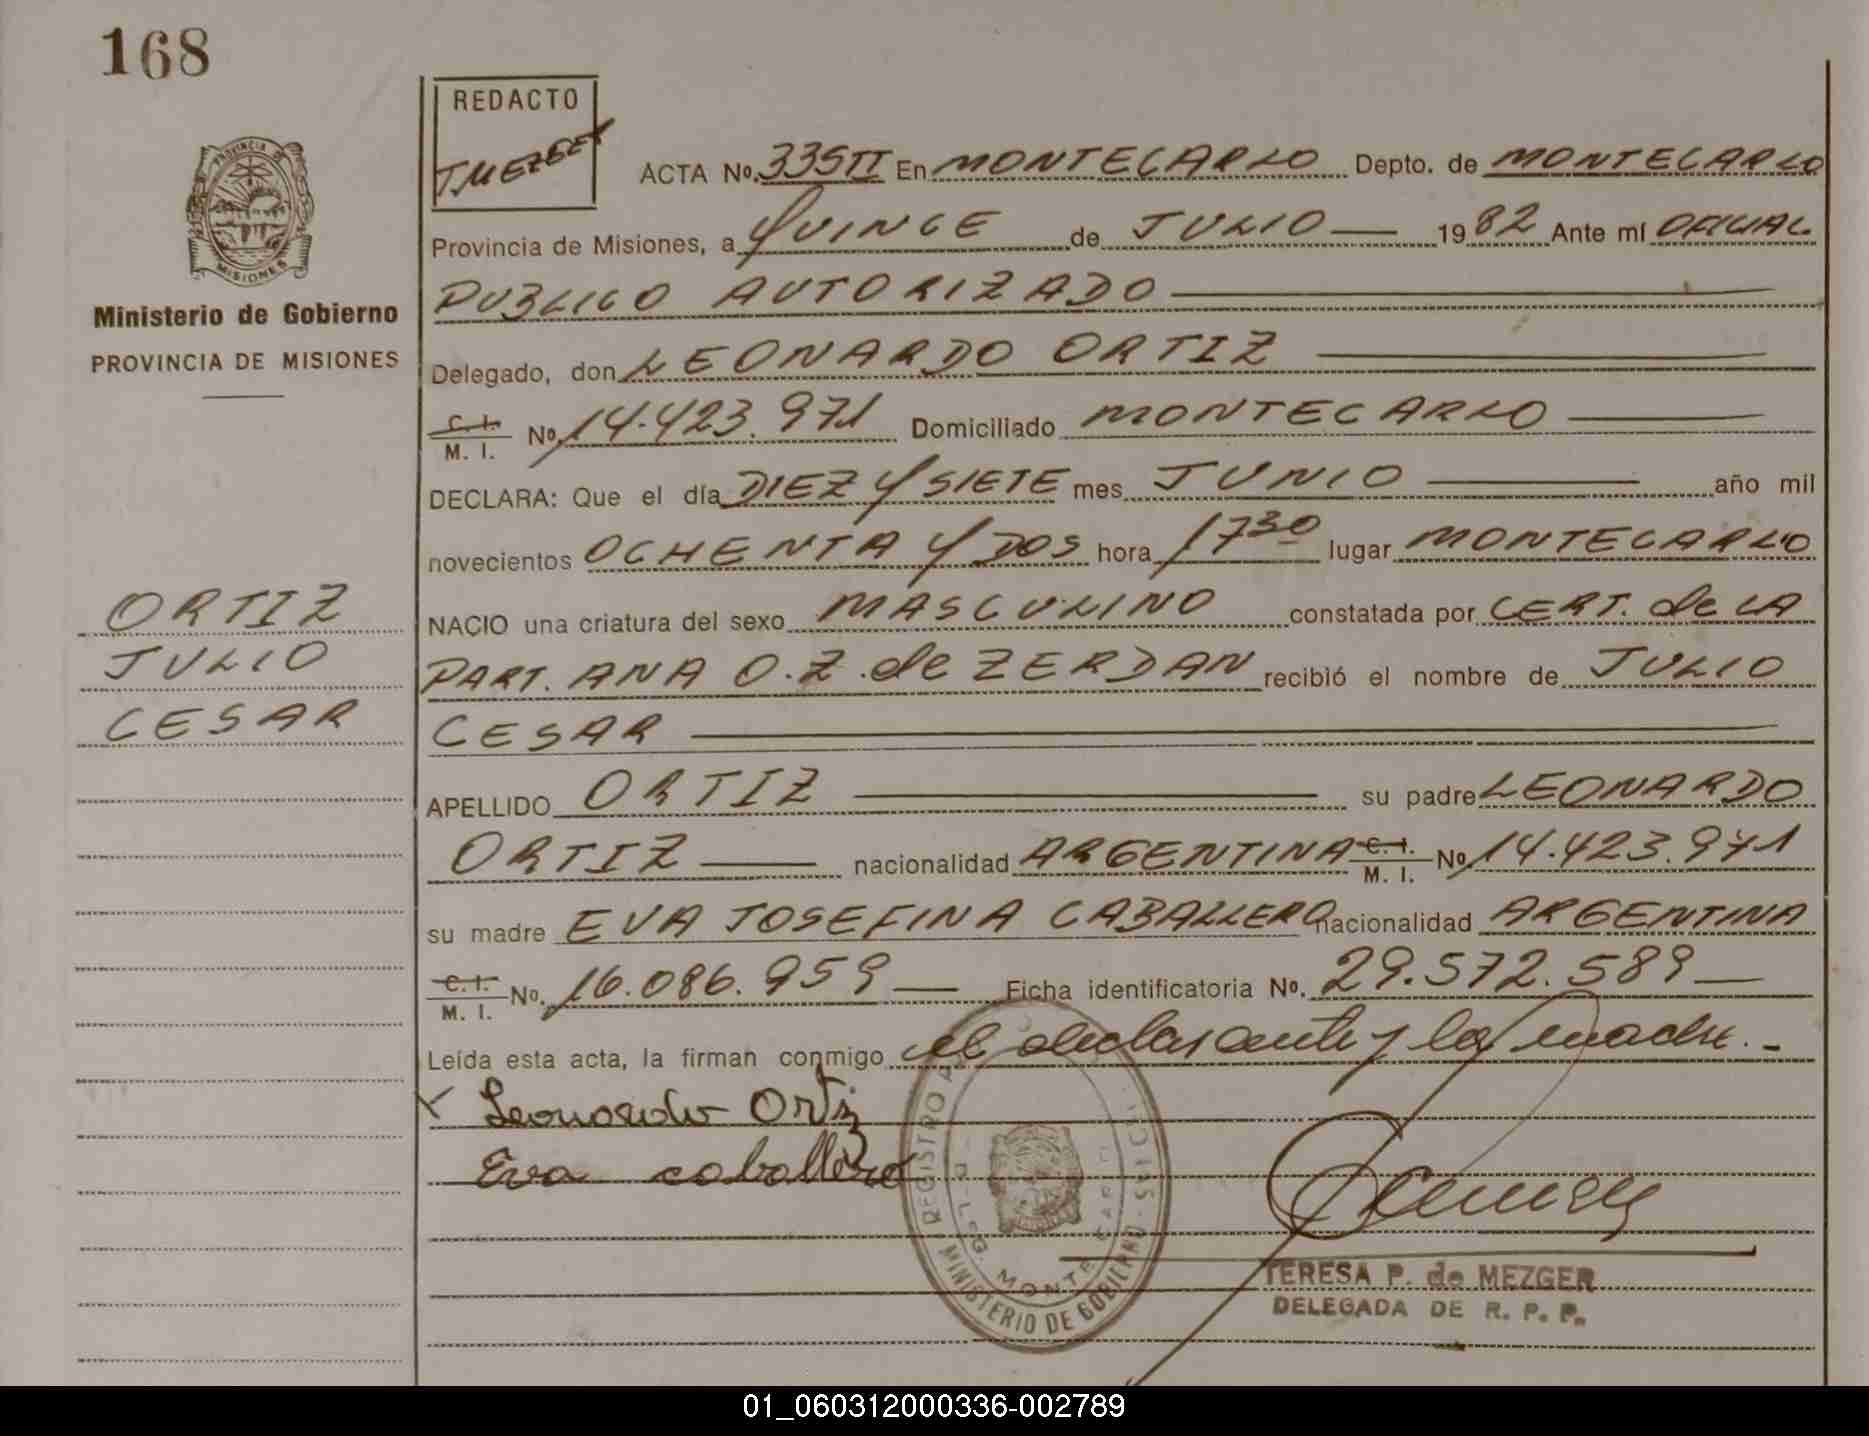 168
REDACTO
T. MEZGER
PROVINCIA DE
MISIONES
Ministerio de Gobierno
PROVINCIA DE MISIONES
ORTIZ
JULIO
CESAR
ACTA No. 335 II En MONTECARLO Depto. de MONTECARLO
Provincia de Misiones, a QUINCE de JULIO — 1982 Ante mí OFICIAL
PUBLICO AUTORIZADO —
Delegado, don LEONARDO ORTIZ —
C. I. M. I. No. 14.423.971 Domiciliado MONTECARLO —
DECLARA: Que el día DIEZ Y SIETE mes JUNIO — año mil
novecientos OCHENTA Y DOS hora 17 30 lugar MONTECARLO
NACIO una criatura del sexo MASCULINO constatada por CERT. de LA
PART. ANA O. Z. de ZERDAN recibió el nombre de JULIO
CESAR —
APELLIDO ORTIZ — su padre LEONARDO
ORTIZ — nacionalidad ARGENTINA C. I. M. I. No. 14.423.971
su madre EVA JOSEFINA CABALLERO nacionalidad ARGENTINA
C. I. M. I. No. 16.086.959 — Ficha identificatoria No. 29.572.589 —
Leída esta acta, la firman conmigo el declarante y la madre. -
Leonardo Ortiz
Eva caballero
REGISTRO
DELEG. MONTECARLO
MINISTERIO DE GOBIERNO
TERESA P. de MEZGER
DELEGADA DE R. P. P.
01_060312000336-002789